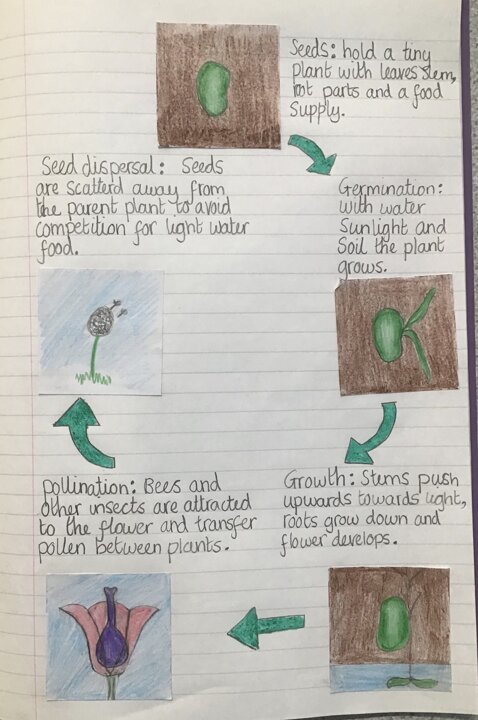 Seeds: hold a tiny
plant with leaves stem,
rot parts and a food
supply.
Germination:
with water
Sunlight and
Soil the plant
grows.
Growth: Stems push
upwards towards light,
roots grow down and
flower develops.
Pollination: Bees and
other insects are attracted
to the flower and transfer
pollen between plants.
Seed dispersal: Seeds
are scatterd away from
the parent plant to avoid
competition for light water
food.